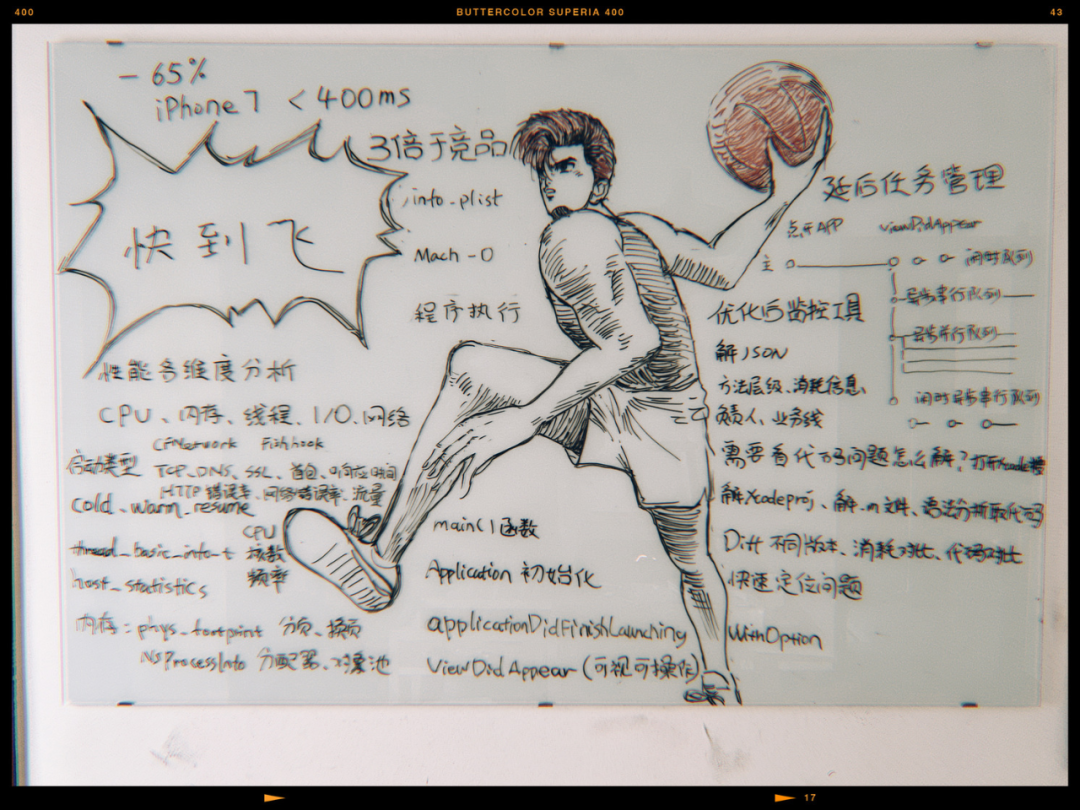 400
BUTTERCOLOR SUPERIA 400
43
- 65%
iPhone 7 < 400ms
3倍于竞品
快到飞
info.plist
Mach-O
程序执行
性能多维度分析
CPU、内存、线程、I/O、网络
CFNetwork Fishhook
启动类型 TCP、DNS、SSL、首包、响应时间
HTTP 错误率、网络错误率、流量
cold、warm、resume
CPU
thread_basic_info_t 核数
host_statistics 频率
内存：phys_footprint 分页、换页
NSProcessInfo 分配器、对象池
main()函数
Application 初始化
applicationDidFinishLaunching WithOption
ViewDidAppear (可视可操作)
延后任务管理
点开APP viewDidAppear
主
闲时队列
异步串行队列
异步并行队列
闲时异步串行队列
优化后监控工具
解JSON
方法层级、消耗信息、
负责人、业务线
需要看代码问题怎么解？打开Xcode
解Xcodeproj、解.m文件、语法分析取代码
Diff 不同版本、消耗对比、代码对比
快速定位问题
17